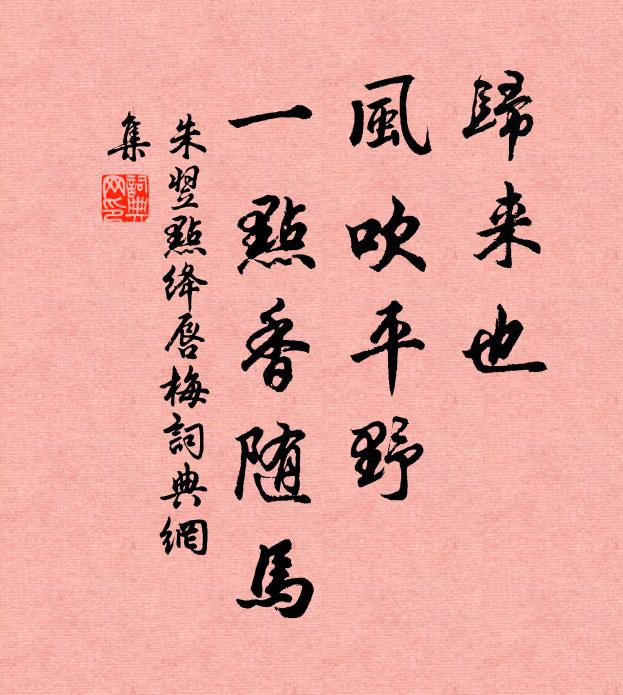 歸来也
風吹平野
一點香随馬
朱翌點绛唇梅詞典網
集
詞典
网印